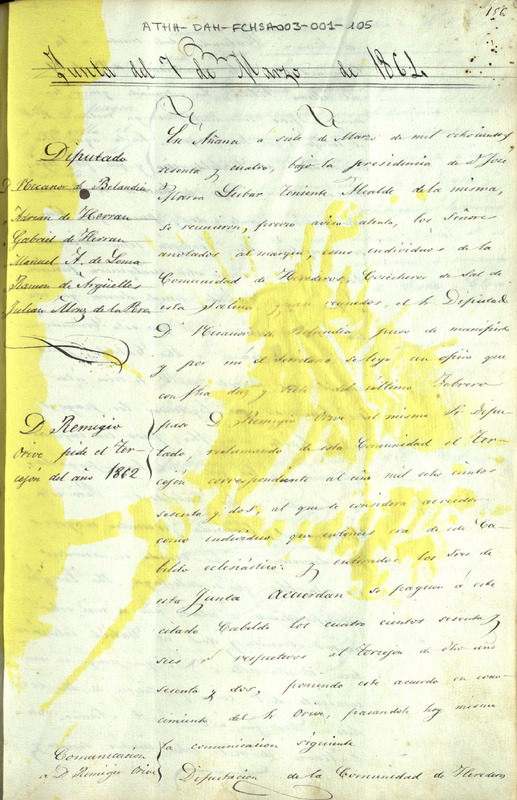 156
ATHA-DAH-FCHSA-003-001-105
Junta del 7 de Marzo de 1864
Diputado
D. Nicanor de Belandia
Adrian de Herran
Gabriel de Herran
Manuel A. de Loma
Ramon de Argüelles
Julian Mnz. de la Pra
En Añana a siete de Marzo de mil ochocientos
sesenta y cuatro, bajo la presidencia de D. José
Maria Leibar Teniente Alcalde de la misma,
se reunieron, previo aviso, los Señores
anotados al margen, como individuos de la
Comunidad de Herederos, Cosecheros de Sal de
esta y reunidos, el Sr Diputado
D. Nicanor de Belandia puso de manifiesto
y por mi el Secretario se leyó un oficio que
con fha diez y siete del último Febrero
D. Remigio
Orive pide el Ter-
cejón del año 1862
pasó D. Remigio Orive al mismo Sr Dipu-
tado, reclamando de esta Comunidad el Ter-
cejón correspondiente al año mil ocho cientos
sesenta y dos, al que se considera acreedor
como individuo que entonces era de este Ca-
bildo eclesiástico: y enterados los Sres de
esta Junta Acuerdan se paguen á este
citado Cabildo los cuatro cientos sesenta y
seis r respectivos al tercejón de dho año
sesenta y dos, poniendo este acuerdo en cono-
cimiento del Sr Orive, pasandole hoy mismo
la comunicación siguiente
Comunicación
a D. Remigio Orive
Diputacion de la Comunidad de Herederos